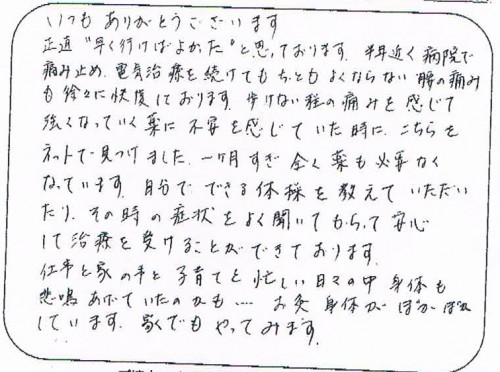 いつもありがとうございます
正直"早く行けばよかった"と思っております。半年近く病院で
痛み止め、電気治療を続けてもちっともよくならない腰の痛み
も徐々に快復しております。歩けない程の痛みを感じて
強くなっていく薬に不安を感じていた時に、こちらを
ネットで見つけました。一ヶ月すぎ全く薬も必要なく
なっています。自分でできる体操を教えていただい
たり、その時の症状をよく聞いてもらって安心
して治療を受けることができております。
仕事と家の事と子育てと忙しい日々の中身体も
悲鳴あげていたのかも…。お灸身体がぽかぽか
しています。家でもやってみます。